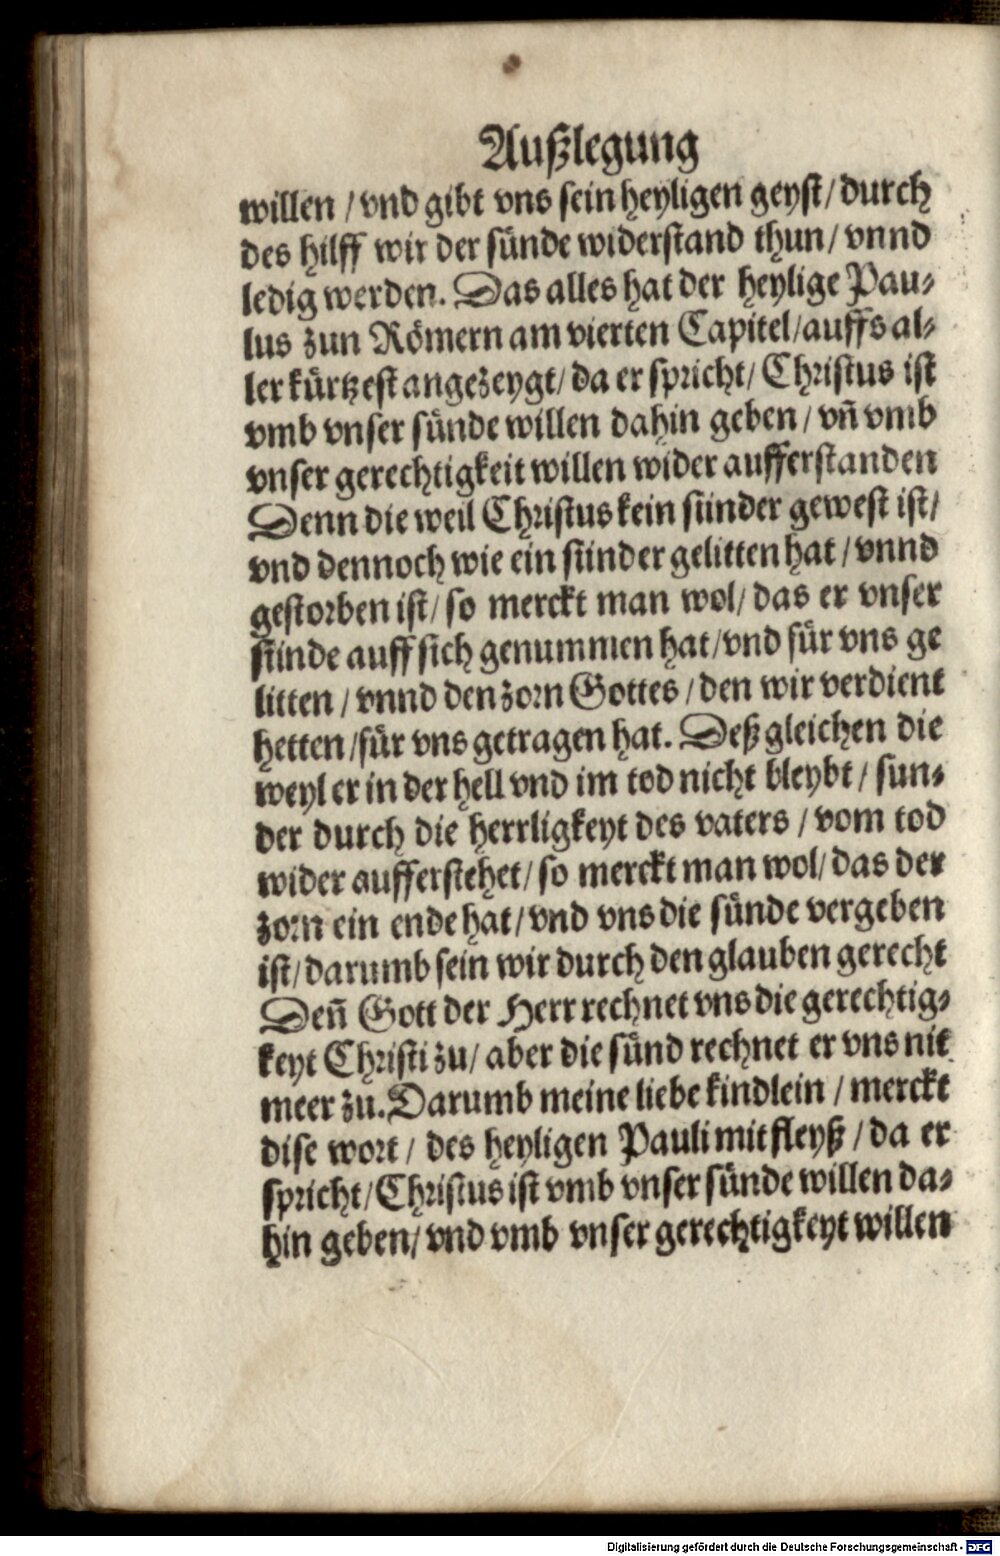 Außlegung
willen / vnd gibt vns sein heyligen geyst / durch
des hilff wir der sünde widerstand thun / vnnd
ledig werden. Das alles hat der heylige Pau⸗
lus zun Römern am vierten Capitel / auffs al⸗
ler kürtzest angezeygt / da er spricht / Christus ist
vmb vnser sünde willen dahin geben / vñ vmb
vnser gerechtigkeit willen wider aufferstanden
Denn die weil Christus kein sünder gewest ist /
vnd dennoch wie ein sünder gelitten hat / vnnd
gestorben ist / so merckt man wol / das er vnser
sünde auff sich genummen hat / vnd für vns ge
litten / vnnd den zorn Gottes / den wir verdient
hetten / für vns getragen hat. Deß gleichen die
weyl er in der hell vnd im tod nicht bleybt / sun⸗
der durch die herrligkeyt des vaters / vom tod
wider aufferstehet / so merckt man wol / das der
zorn ein ende hat / vnd vns die sünde vergeben
ist / darumb sein wir durch den glauben gerecht
Deñ Gott der Herr rechnet vns die gerechtig⸗
keyt Christi zu / aber die sünd rechnet er vns nit
meer zu. Darumb meine liebe kindlein / merckt
dise wort / des heyligen Pauli mit fleyß / da er
spricht / Christus ist vmb vnser sünde willen da⸗
hin geben / vnd vmb vnser gerechtigkeyt willen
Digitalisierung gefördert durch die Deutsche Forschungsgemeinschaft - DFG